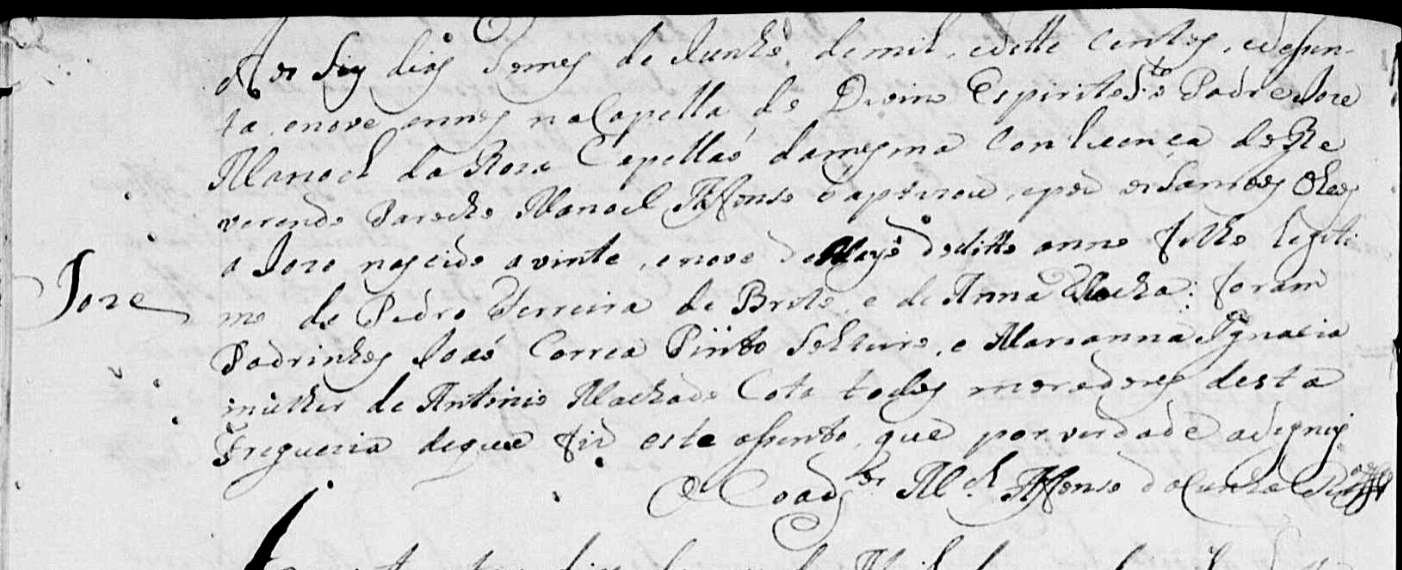 Aos Seis dias do mes de Junho de mil, e sette centos, e desun-
ta, e nove annos na Capella do Divino Espirito Sto o Padre Joze
Manoel da Roza Capellaõ da mesma com licença do Re
verendo Parocho Manoel Affonso baptizou, e pos os Santos Oleos
a Joze nascido a vinte, e nove de Mayo do ditto anno filho legiti
Joze
mo de Pedro Ferreira de Brito, e de Anna Rocha: foram
Padrinhos Joaõ Correa Pinto Solteiro, e Marianna Ignacia
mulher de Antonio Machado Cota todos moradores desta
Freguezia de que fiz este assento, que por verdade asignei
O Coadjor Mel Affonso da Cunha